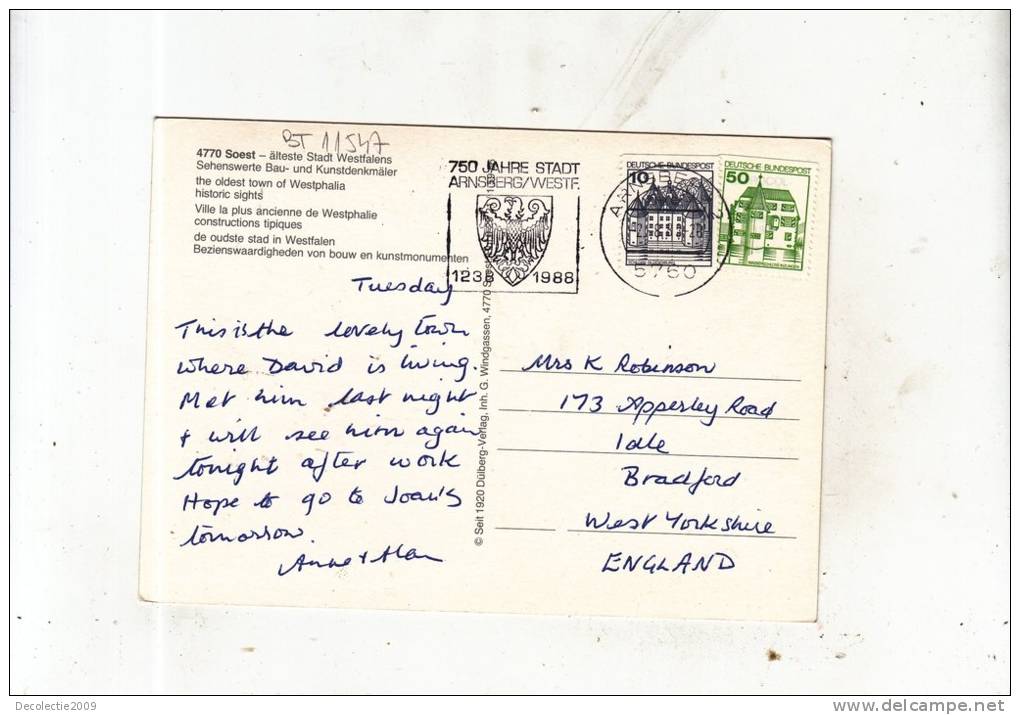 BT 11547
4770 Soest – älteste Stadt Westfalens
Sehenswerte Bau- und Kunstdenkmäler
the oldest town of Westphalia
historic sights
Ville la plus ancienne de Westphalie
constructions tipiques
de oudste stad in Westfalen
Bezienswaardigheden von bouw en kunstmonumenten
750 JAHRE STADT
ARNSBERG/WESTF.
1238 1988
5760
DEUTSCHE BUNDESPOST
10
DEUTSCHE BUNDESPOST
50
Tuesday
This is the lovely town
where David is living.
Met him last night
+ will see him again
tonight after work
Hope to go to Joan's
tomorrow.
Anne + Alan
© Seit 1920 Dülberg-Verlag, Inh. G. Windgassen, 4770 Soest
Mrs K Robinson
173 Apperley Road
Idle
Bradford
West Yorkshire
ENGLAND
Decolectie2009
delcampe.net